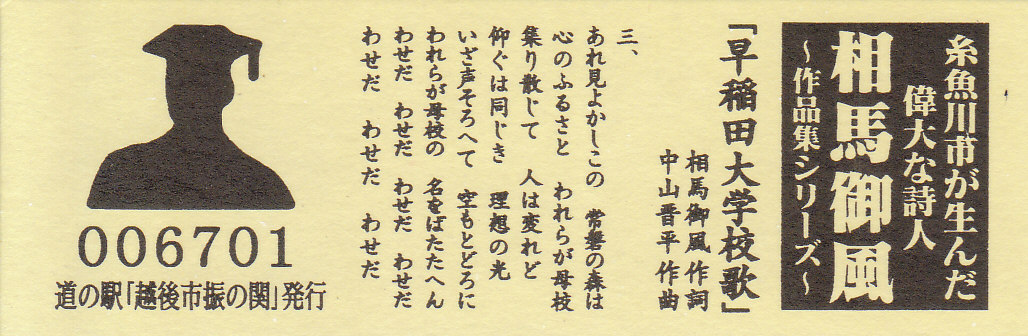 糸魚川市が生んだ
偉大な詩人
相馬御風
～作品集シリーズ～
「早稲田大学校歌」
相馬御風 作詞
中山晋平 作曲
三、
あれ見よかしこの　常磐の森は
心のふるさと　われらが母校
集り散じて　人は変れど
仰ぐは同じき　理想の光
いざ声そろへて　空もとどろに
われらが母校の　名をばたたへん
わせだ　わせだ　わせだ　わせだ
わせだ　わせだ　わせだ
006701
道の駅「越後市振の関」発行